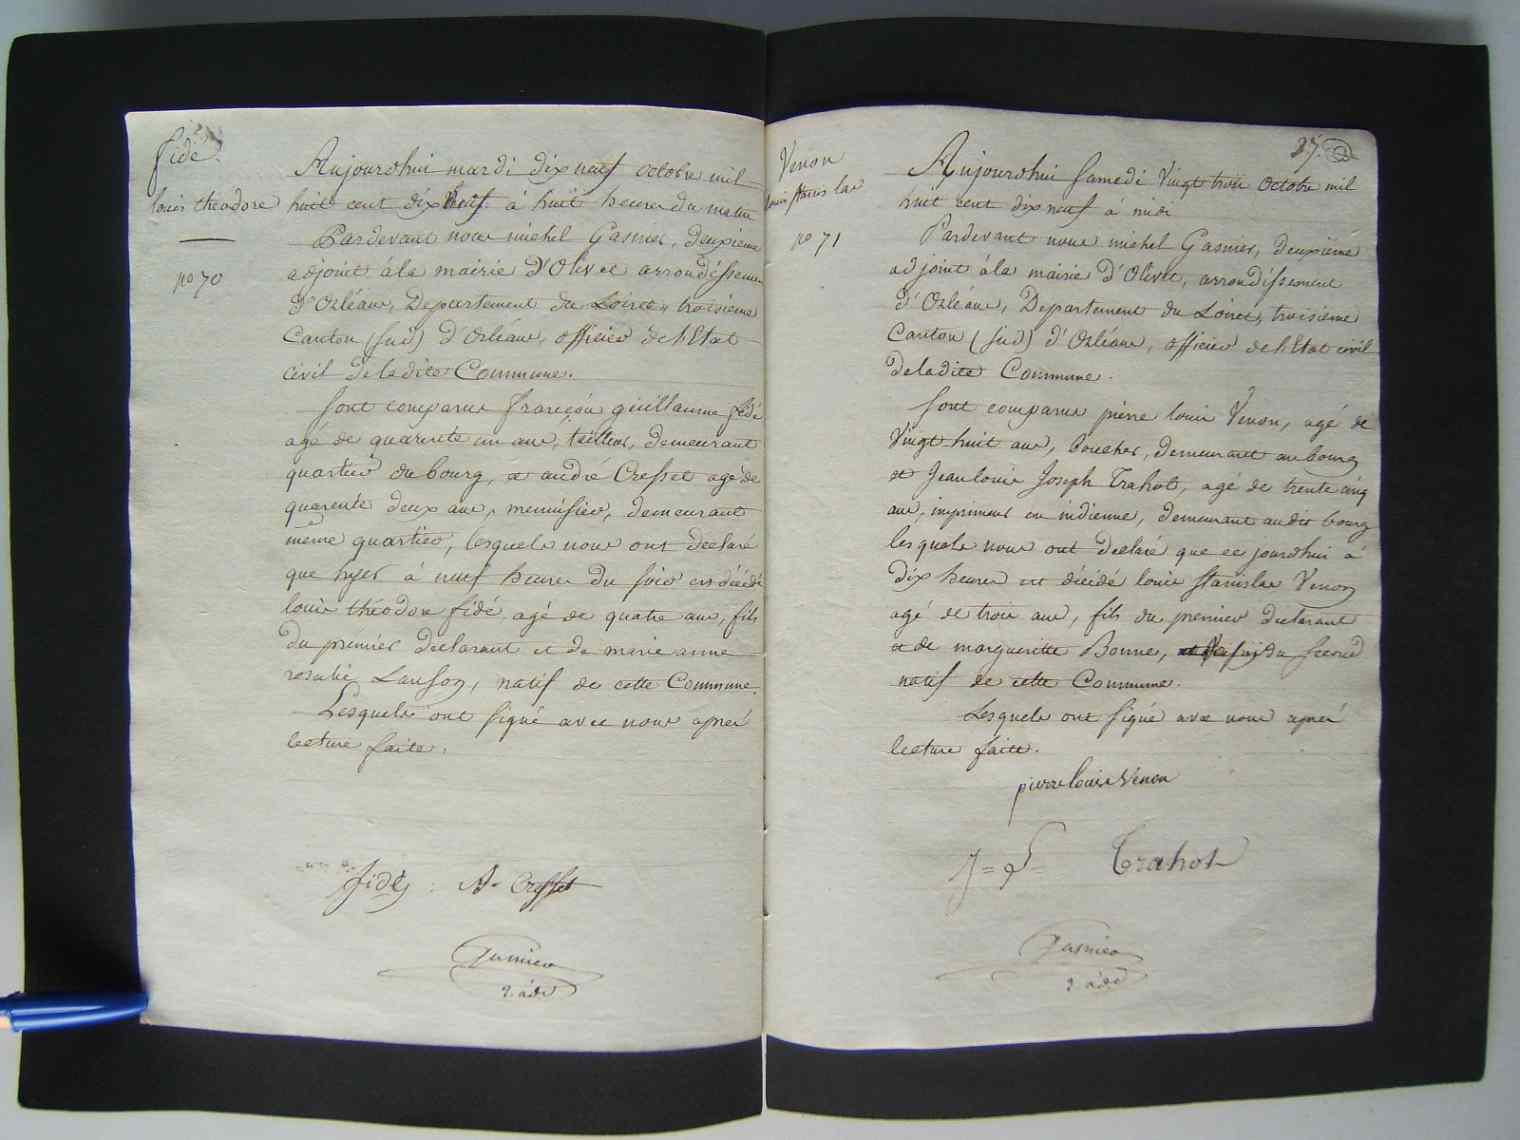 fidé
louis théodore
no 70
Aujourd'hui mardi dix neuf octobre mil
huit cent dix neuf à huit heures du matin
Pardevant nous michel Gasnier, deuxieme
adjoint à la mairie d'Olivet arrondissement
d'Orléans, Departement du Loiret, troisieme
Canton (sud) d'Orléans, officier de l'Etat
civil de la dite Commune.
sont comparus françois guillaume fidé
agé de quarente un ans, taillier, demeurant
quartier du bourg, et andré Cresset agé de
quarente deux ans, menuisier, demeurant
même quartier, lesquels nous ont declaré
que hyer à neuf heures du soir est décédé
louis théodore fidé agé de quatre ans, fils
du premier declarant et de marie anne
rosalie Lanson, natif de cette Commune.
Lesquels ont signé avec nous après
lecture faite.
fidé A. Cresset
Gasnier
2. adj
37.
Venon
louis stanislas
no 71
Aujourd'hui samedi vingt trois octobre mil
huit cent dix neuf à midi
Pardevant nous michel Gasnier, deuxième
adjoint à la mairie d'Olivet, arrondissement
d'Orléans, Departement du Loiret, troisieme
Canton (sud) d'Orléans, officier de l'Etat civil
de la dite Commune.
sont comparus pierre louis Venon, agé de
vingt huit ans, boucher, demeurant au bourg
et Jean louis Joseph Trahot, agé de trente cinq
ans, imprimeur en indienne, demeurant au dit bourg
lesquels nous ont declaré que ce jourd'hui à
dix heures est décédé louis stanislas Venon
agé de trois ans, fils du premier declarant
et de marguerite Bonne, du second
natif de cette Commune.
Lesquels ont signé avec nous après
lecture faite.
pierre louis Venon
Trahot
Gasnier
2. adj